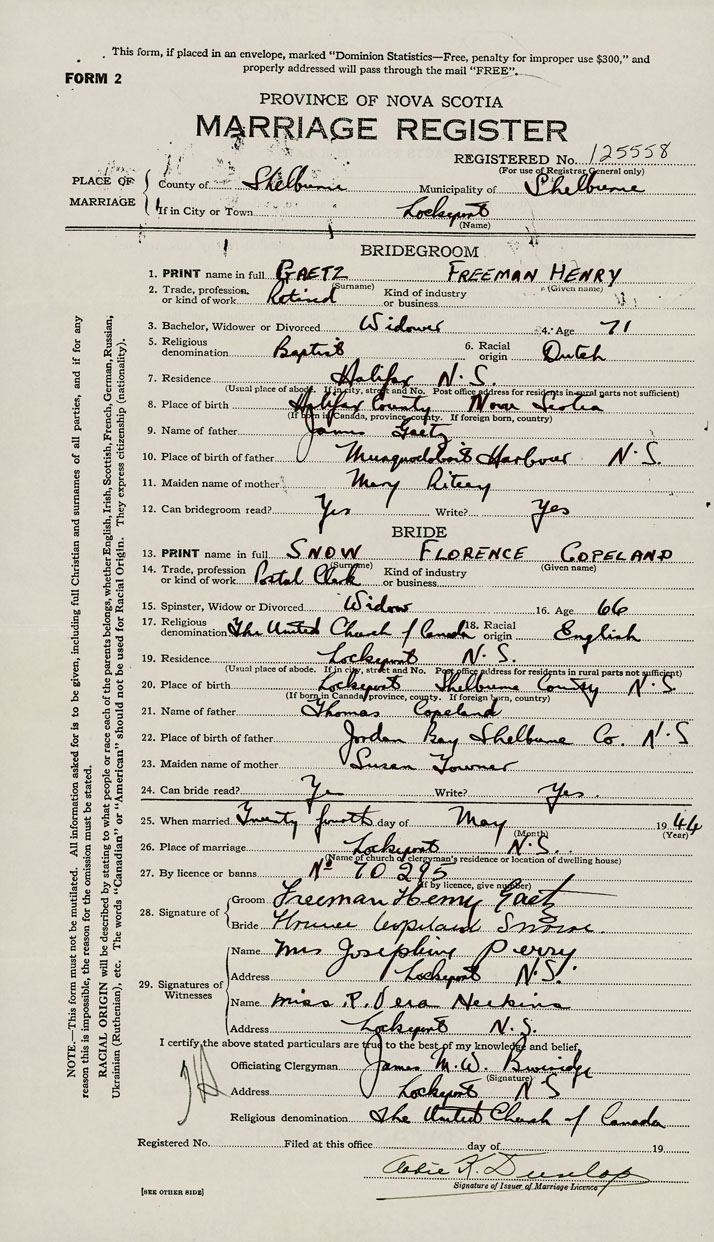 This form, if placed in an envelope, marked "Dominion Statistics—Free, penalty for improper use $300," and
properly addressed will pass through the mail "FREE".
FORM 2
PROVINCE OF NOVA SCOTIA
MARRIAGE REGISTER
REGISTERED No. 125558
(For use of Registrar General only)
PLACE OF MARRIAGE
County of Shelburne Municipality of Shelburne
If in City or Town Lockeport
(Name)
BRIDEGROOM
1. PRINT name in full GAETZ FREEMAN HENRY
(Surname) (Given name)
2. Trade, profession or kind of work Retired Kind of industry or business
3. Bachelor, Widower or Divorced Widower 4. Age 71
5. Religious denomination Baptist 6. Racial origin Dutch
7. Residence Halifax N.S.
(Usual place of abode. If in city, street and No. Post office address for residents in rural parts not sufficient)
8. Place of birth Halifax County Nova Scotia
(If born in Canada, province, county. If foreign born, country)
9. Name of father James Gaetz
10. Place of birth of father Musquodoboit Harbour N.S.
11. Maiden name of mother Mary Ritcey
12. Can bridegroom read? Yes Write? Yes
BRIDE
13. PRINT name in full SNOW FLORENCE COPELAND
(Surname) (Given name)
14. Trade, profession or kind of work Postal Clerk Kind of industry or business
15. Spinster, Widow or Divorced Widow 16. Age 66
17. Religious denomination The United Church of Canada 18. Racial origin English
19. Residence Lockeport N.S.
(Usual place of abode. If in city, street and No. Post office address for residents in rural parts not sufficient)
20. Place of birth Lockeport Shelburne County N.S
(If born in Canada, province, county. If foreign born, country)
21. Name of father Thomas Copeland
22. Place of birth of father Jordan Bay Shelburne Co. N.S
23. Maiden name of mother Susan
24. Can bride read? Yes Write? Yes.
25. When married Twenty fourth day of May 1944
(Month) (Year)
26. Place of marriage Lockeport N.S.
(Name of church of clergyman's residence or location of dwelling house)
27. By licence or banns No 70 295
(If by licence, give number)
28. Signature of
Groom Freeman Henry Gaetz
Bride Florence Copeland Snow
29. Signatures of Witnesses
Name Mrs Josephine Perry
Address Lockeport N.S.
Name Miss P. Vera Huskins
Address Lockeport N.S.
I certify the above stated particulars are true to the best of my knowledge and belief,
Officiating Clergyman James M.W.
(Signature)
Address Lockeport N S
Religious denomination The United Church of Canada
Registered No. Filed at this office day of 19
K. Dunlop
Signature of Issuer of Marriage Licence
[SEE OTHER SIDE]
NOTE.—This form must not be mutilated. All information asked for is to be given, including full Christian and surnames of all parties, and if for any
reason this is impossible, the reason for the omission must be stated.
RACIAL ORIGIN will be described by stating to what people or race each of the parents belongs, whether English, Irish, Scottish, French, German, Russian,
Ukrainian (Ruthenian), etc. The words "Canadian" or "American" should not be used for Racial Origin. They express citizenship (nationality).